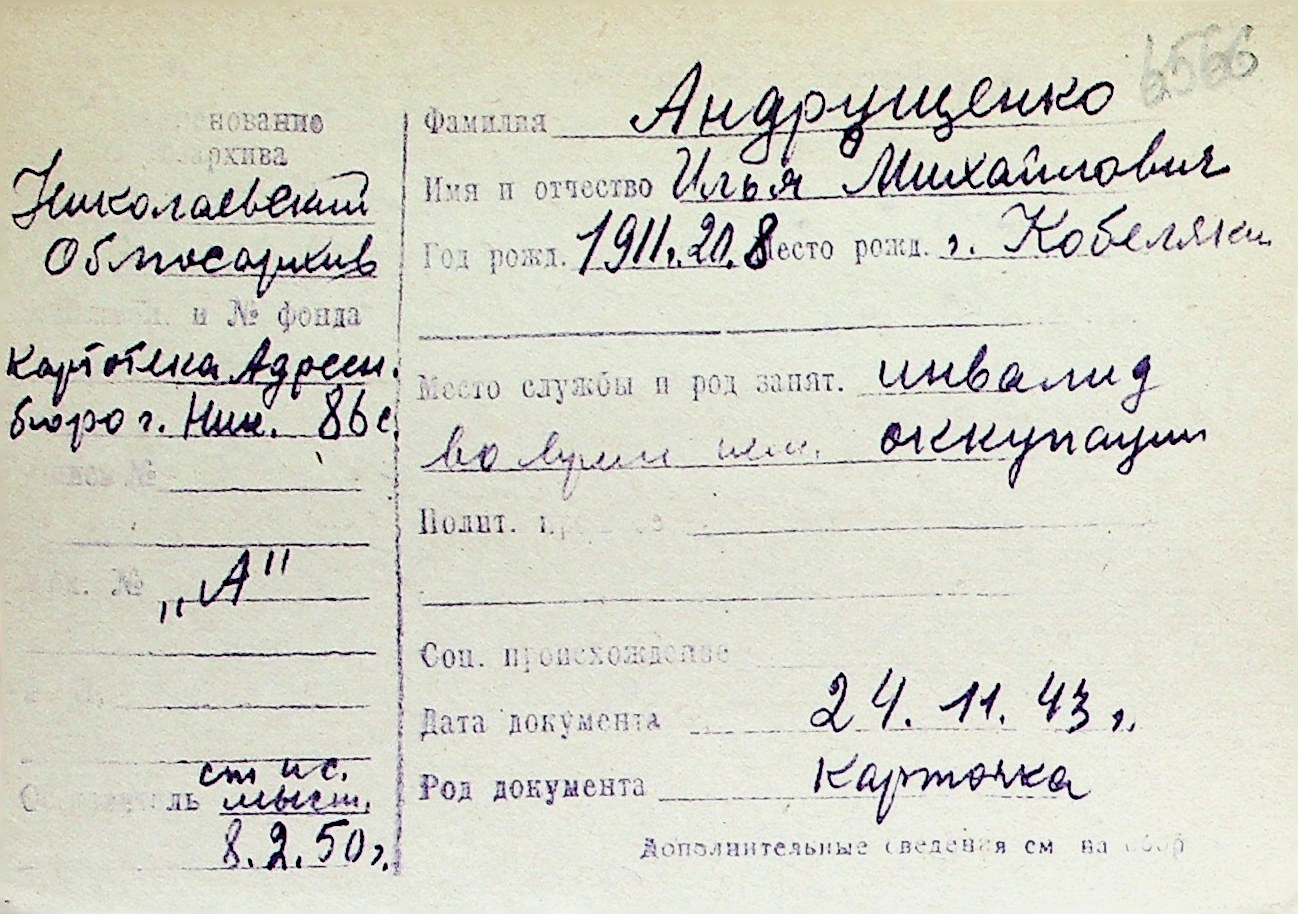 6566
нование
архива
Николаевский
Облгосархив
и № фонда
Картотека Адресн.
бюро г. Ник. 86 с.
№
№ „А"
ст ис.
мыст.
8.2.50 г.
Фамилия Андрущенко
Имя и отчество Илья Михайлович
Год рожд. 1911. 20. 8 Место рожд. г. Кобеляки
Место службы и род занят. инвалид
во время нем. оккупации
Полит.
Соц. происхождение
Дата документа 24. 11. 43 г.
Род документа Карточка
Дополнительные сведения см на обор